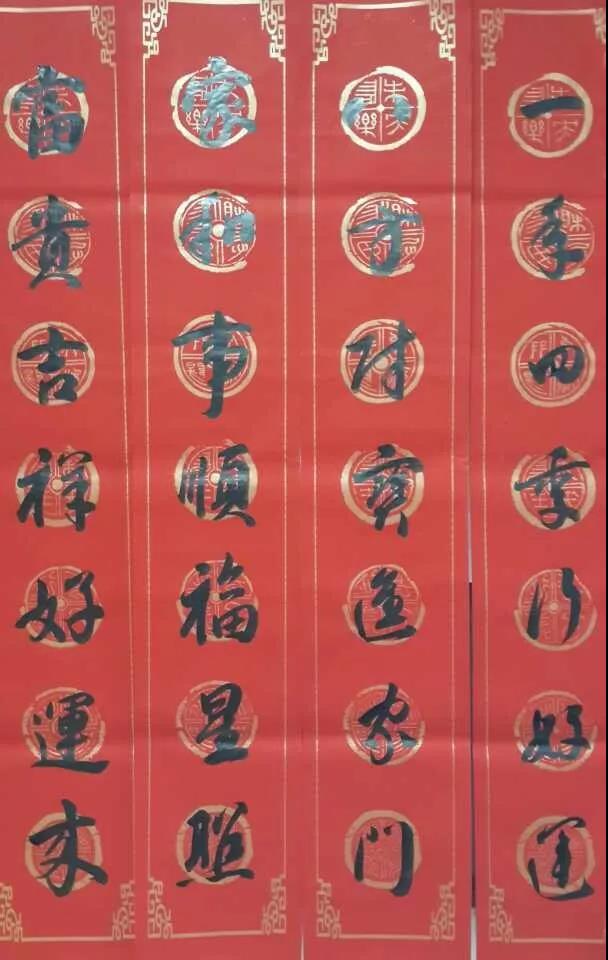 一年四季行好運
八方財寶進家門
家和事順福星照
富貴吉祥好運来